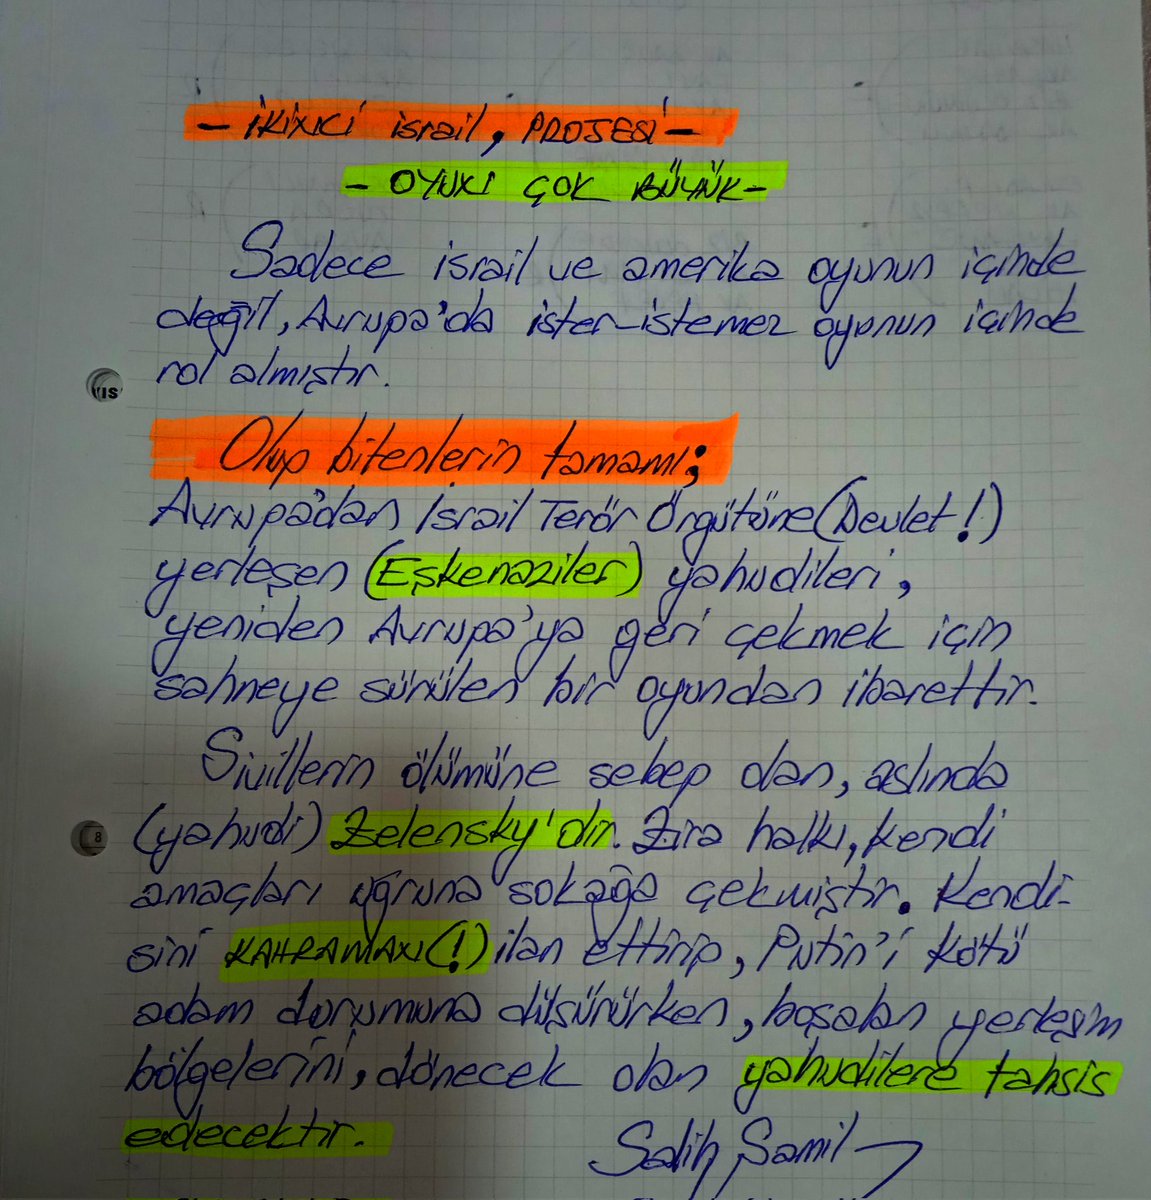 - İKİNCİ israil, PROJESİ -
- OYUNU ÇOK BÜYÜK -
Sadece israil ve amerika oyunun içinde
değil, Avrupa'da ister-istemez oyunun içinde
rol almıştır.
Olup bitenlerin tamamı;
Avrupa'dan İsrail Terör Örgütüne (Devlet!)
yerleşen (Eşkenaziler) yahudileri,
yeniden Avrupa'ya geri çekmek için
sahneye sürülen bir oyundan ibarettir.
Sivillerin ölümüne sebep olan, aslında
(yahudi) Zelensky'dir. Zira halkı, kendi
amaçları uğruna sokağa çekmiştir. Kendi-
sini KAHRAMAN(!) ilan ettirip, Putin'i kötü
adam durumuna düşürürken, boşalan yerleşim
bölgelerini, dönecek olan yahudilere tahsis
edecektir.
Salih Şamil